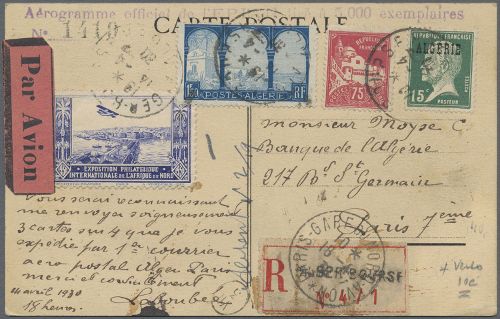 Aérogramme officiel de l'E 5.000 exemplaires
N° 1410
CARTE POSTALE
Par Avion
ALGER-R.P
1f50 POSTES·ALGÉRIE RF
75c
ALGÉRIE
15c
PASTEUR
EXPOSITION PHILATÉLIQUE
INTERNATIONALE DE L'AFRIQUE DU NORD
Monsieur Moyse C.
Banque de l'Algérie
217 Bd St Germain
Paris 7ème
Vous serai reconnaissant
me renvoyer soigneusement
3 cartes sur 4 que je vous
expédie par 1er courrier
aero postal Alger Paris
merci et cordialement
14 avril 1930
18 heures
PARIS-GARE
R
ALGER BOURSE
N° 471